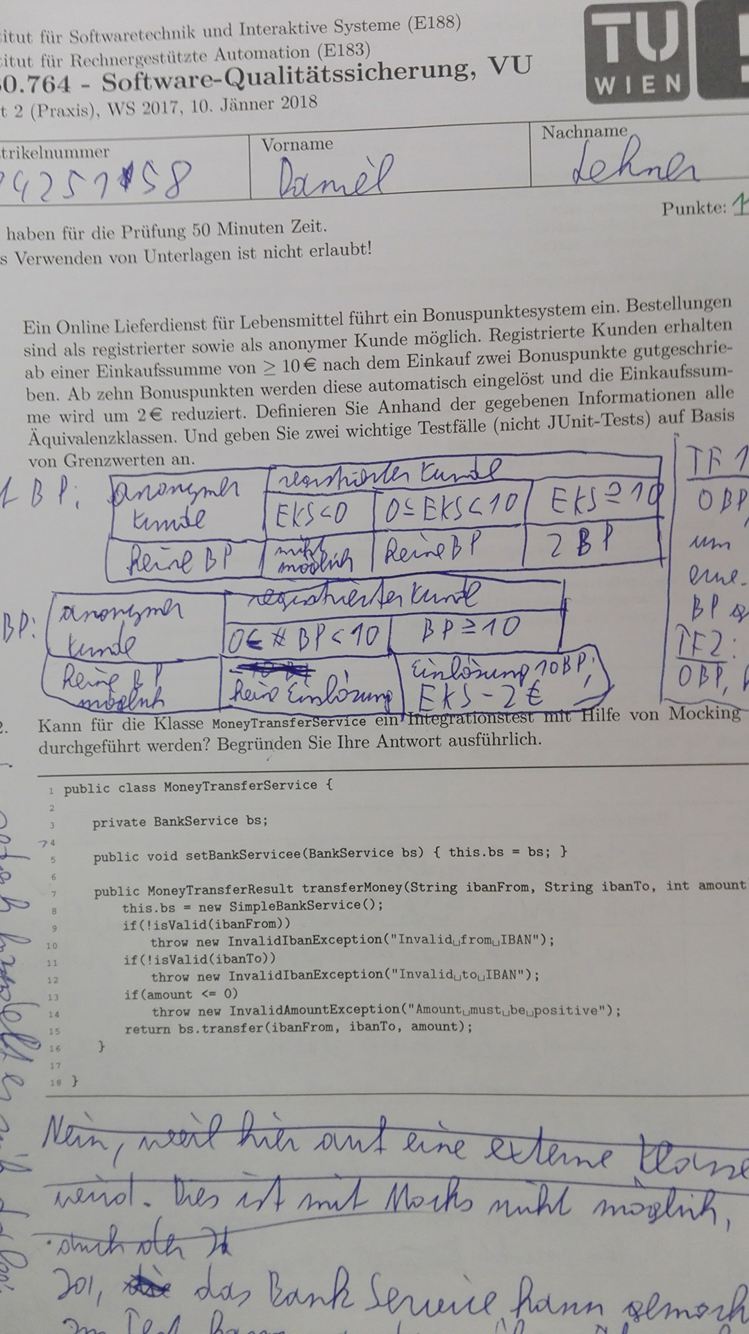 itut für Softwaretechnik und Interaktive Systeme (E188)
titut für Rechnergestützte Automation (E183)
0.764 - Software-Qualitätssicherung, VU
t 2 (Praxis), WS 2017, 10. Jänner 2018
TU
WIEN
trikelnummer
Vorname
Nachname
Daniel
Lehner
Punkte:
haben für die Prüfung 50 Minuten Zeit.
s Verwenden von Unterlagen ist nicht erlaubt!
Ein Online Lieferdienst für Lebensmittel führt ein Bonuspunktesystem ein. Bestellungen
sind als registrierter sowie als anonymer Kunde möglich. Registrierte Kunden erhalten
ab einer Einkaufssumme von ≥ 10 € nach dem Einkauf zwei Bonuspunkte gutgeschrie-
ben. Ab zehn Bonuspunkten werden diese automatisch eingelöst und die Einkaufssum-
me wird um 2 € reduziert. Definieren Sie Anhand der gegebenen Informationen alle
Äquivalenzklassen. Und geben Sie zwei wichtige Testfälle (nicht JUnit-Tests) auf Basis
von Grenzwerten an.
BP:
anonymer Kunde
registrierter Kunde
EKS<0
0≤EKS<10
EKS≥10
Keine BP
nicht möglich
Keine BP
2 BP
TF 1
0 BP
um
BP
TF2:
0BP,
BP:
anonymer Kunde
registrierter Kunde
0≤ # BP<10
BP≥10
Keine BP möglich
Keine Einlösung
Einlösung 10BP;
EKS-2€
2. Kann für die Klasse MoneyTransferService ein Integrationstest mit Hilfe von Mocking
durchgeführt werden? Begründen Sie Ihre Antwort ausführlich.
1 public class MoneyTransferService {
2
3 private BankService bs;
4
5 public void setBankServicee(BankService bs) { this.bs = bs; }
6
7 public MoneyTransferResult transferMoney(String ibanFrom, String ibanTo, int amount
8 this.bs = new SimpleBankService();
9 if(!isValid(ibanFrom))
10 throw new InvalidIbanException("Invalid␣from␣IBAN");
11 if(!isValid(ibanTo))
12 throw new InvalidIbanException("Invalid␣to␣IBAN");
13 if(amount <= 0)
14 throw new InvalidAmountException("Amount␣must␣be␣positive");
15 return bs.transfer(ibanFrom, ibanTo, amount);
16 }
17
18 }
Nein, weil hier auf eine externe Klasse
wird. Dies ist mit Mocks nicht möglich,
durch den
Ja, das Bank Service kann gemock